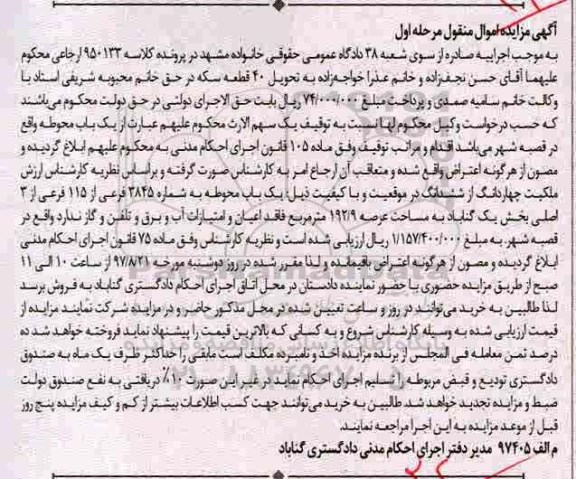 آگهی مزایده اموال منقول مرحله اول
به موجب اجراییه صادره از سوی شعبه ۳۸ دادگاه عمومی حقوقی خانواده مشهد در پرونده کلاسه ۹۵۰۱۳۳ ارجاعی محکوم
علیهما آقای حسن نجف‌زاده و خانم عذرا خواجه‌زاده به تحویل ۴۰ قطعه سکه در حق خانم محبوبه شریفی استاد با
وکالت خانم سامیه صمدی و پرداخت مبلغ ۷۴/۰۰۰/۰۰۰ ریال بابت حق الاجرای دولتی در حق دولت محکوم می‌باشند
که حسب درخواست وکیل محکوم لها نسبت به توقیف یک سهم الارث محکوم علیهم عبارت از یک باب محوطه واقع
در قصبه شهر می‌باشد اقدام و مراتب توقیف وفق ماده ۱۰۵ قانون اجرای احکام مدنی به محکوم علیهم ابلاغ گردیده و
مصون از هرگونه اعتراض واقع شده و متعاقب آن ارجاع امر به کارشناس صورت گرفته و براساس نظریه کارشناس ارزش
ملکیت چهاردانگ از ششدانگ در موقعیت و با کیفیت ذیل: یک باب محوطه به شماره ۳۸۴۵ فرعی از ۱۱۵ فرعی از ۳
اصلی بخش یک گناباد به مساحت عرصه ۱۹۲/۹ مترمربع فاقد اعیان و امتیازات آب و برق و تلفن و گاز ندارد واقع در
قصبه شهر، به مبلغ ۱/۱۵۷/۴۰۰/۰۰۰ ریال ارزیابی شده است و نظریه کارشناس وفق ماده ۷۵ قانون اجرای احکام مدنی
ابلاغ گردیده و مصون از هرگونه اعتراض باقیمانده و لذا مقرر شده در روز دوشنبه مورخه ۹۷/۸/۲۱ از ساعت ۱۰ الی ۱۱
صبح از طریق مزایده حضوری با حضور نماینده دادستان در محل اتاق اجرای احکام دادگستری گناباد به فروش برسد
لذا طالبین به خرید می‌توانند در روز و ساعت تعیین شده در محل مذکور حاضر و در مزایده شرکت نمایند مزایده از
قیمت ارزیابی شده به وسیله کارشناس شروع و به کسانی که بالاترین قیمت را پیشنهاد نماید فروخته خواهد شد ده
درصد ثمن معامله فی المجلس از برنده مزایده اخذ و نامبرده مکلف است مابقی را حداکثر ظرف یک ماه به صندوق
دادگستری تودیع و قبض مربوطه را تسلیم اجرای احکام نماید در غیر این صورت ۱۰٪ دریافتی به نفع صندوق دولت
ضبط و مزایده تجدید خواهد شد. طالبین به خرید می‌توانند جهت کسب اطلاعات بیشتر از کم و کیف مزایده پنج روز
قبل از موعد مزایده به این اجرا مراجعه نمایند.
م الف ۹۷۴۰۵ مدیر دفتر اجرای احکام مدنی دادگستری گناباد